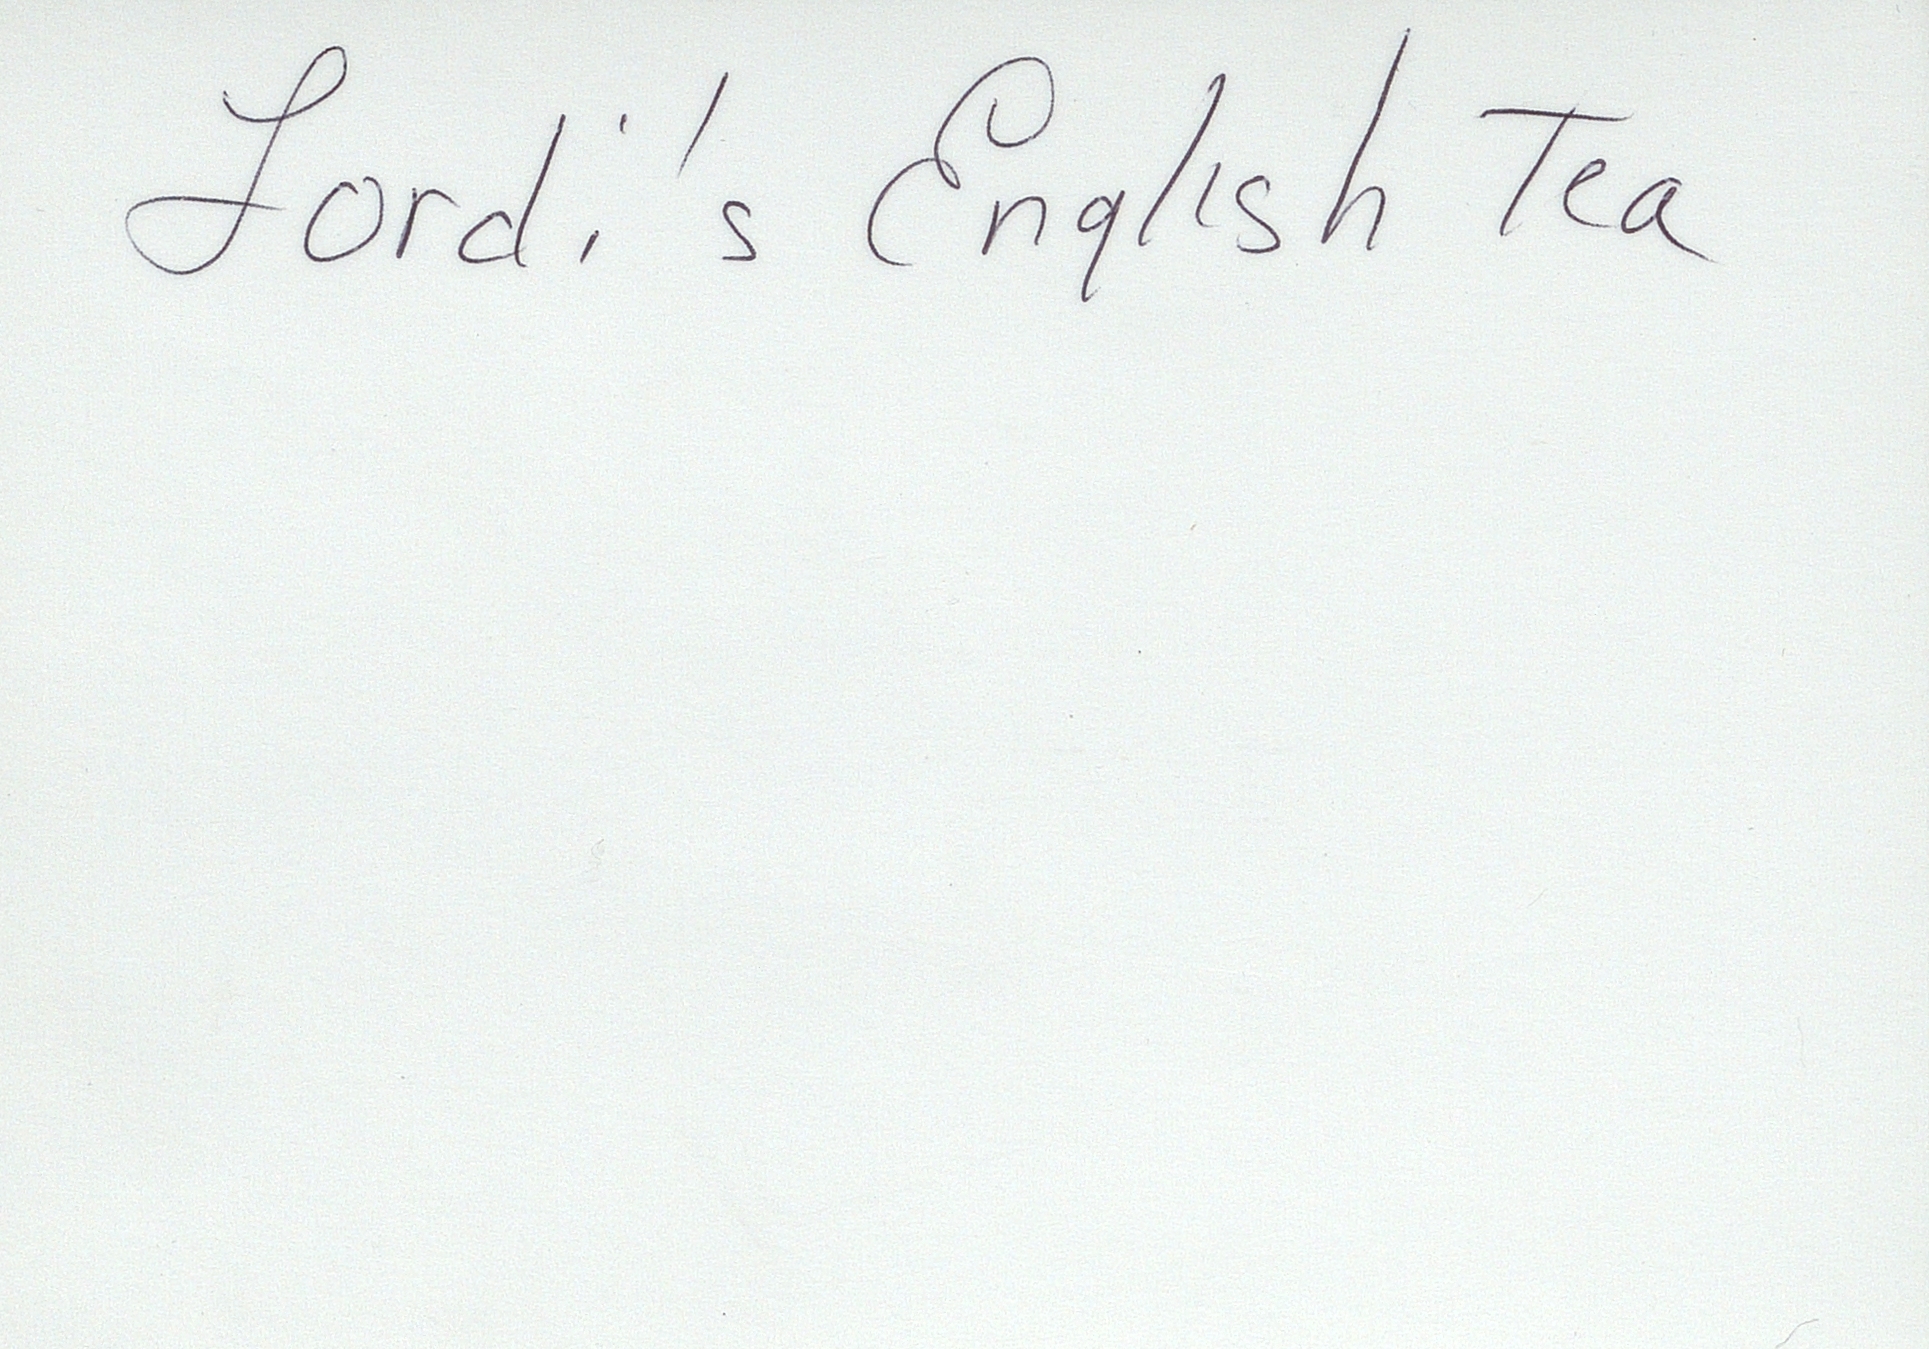 Lordi's English Tea